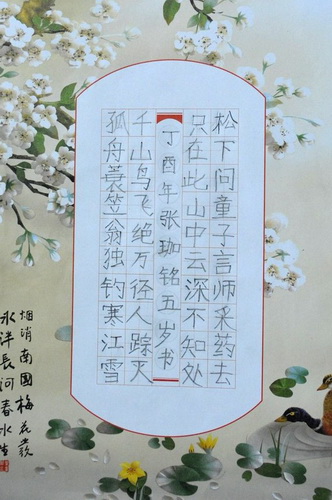 松下问童子言师采药去
只在此山中云深不知处
丁酉年张珈铭五岁书
千山鸟飞绝万径人踪灭
孤舟蓑笠翁独钓寒江雪
烟消南國梅花發
冰泮長河春水生